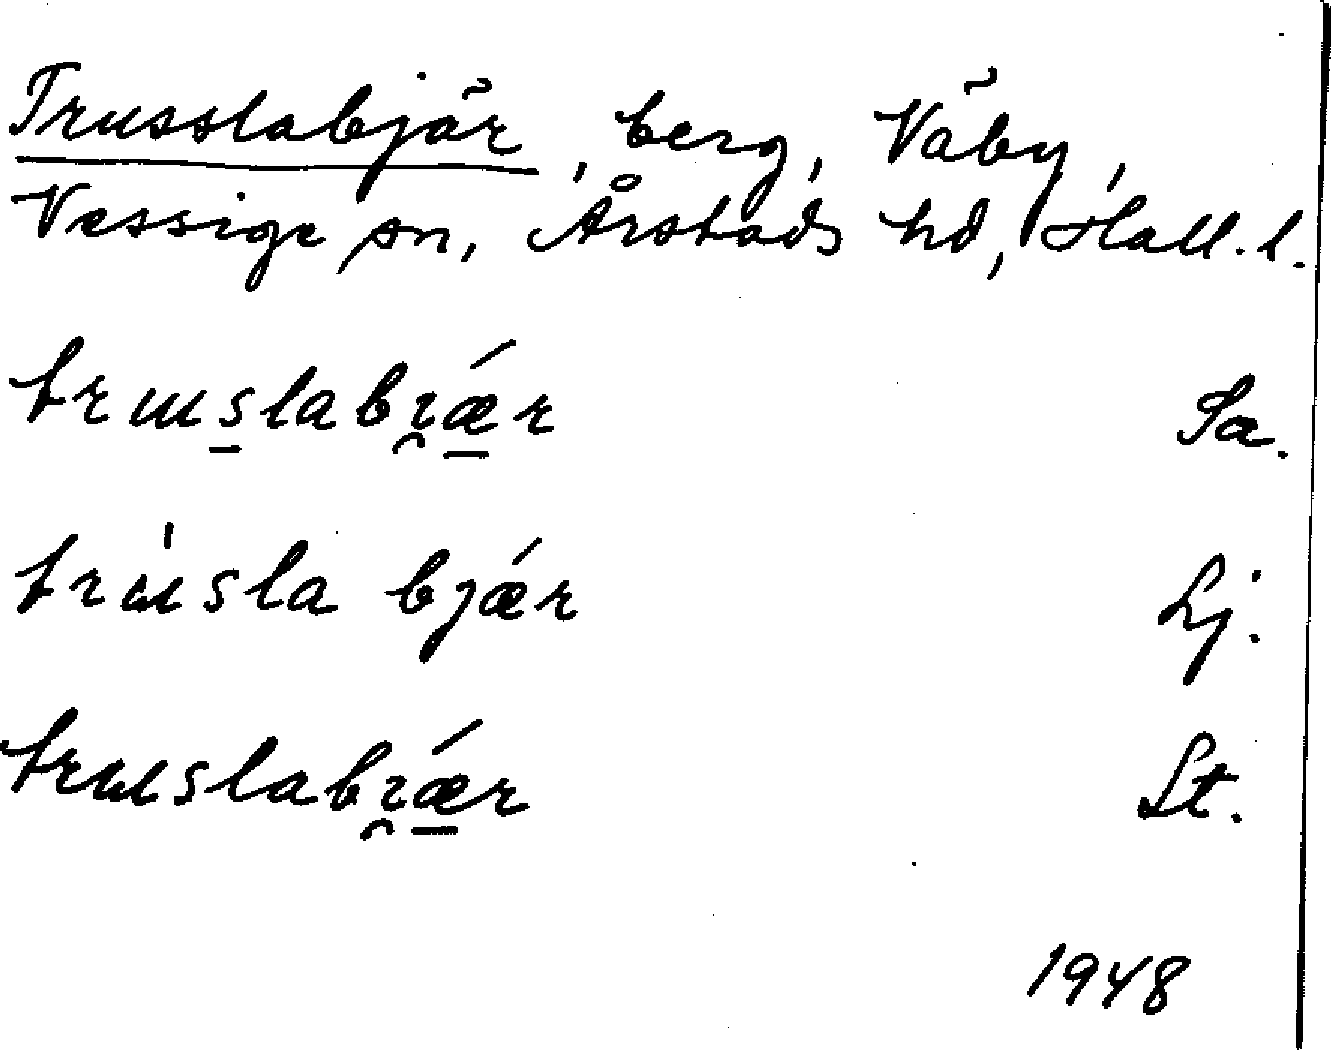 Trusslabjär, berg, Väby,
Vessige sn, Årstads hd, Hall. l.
trɯs̲labi̯ǽ̲r Sa.
trɯ́sla bjǽr Lj.
trɯslabi̯ǽ̲r St.
1948